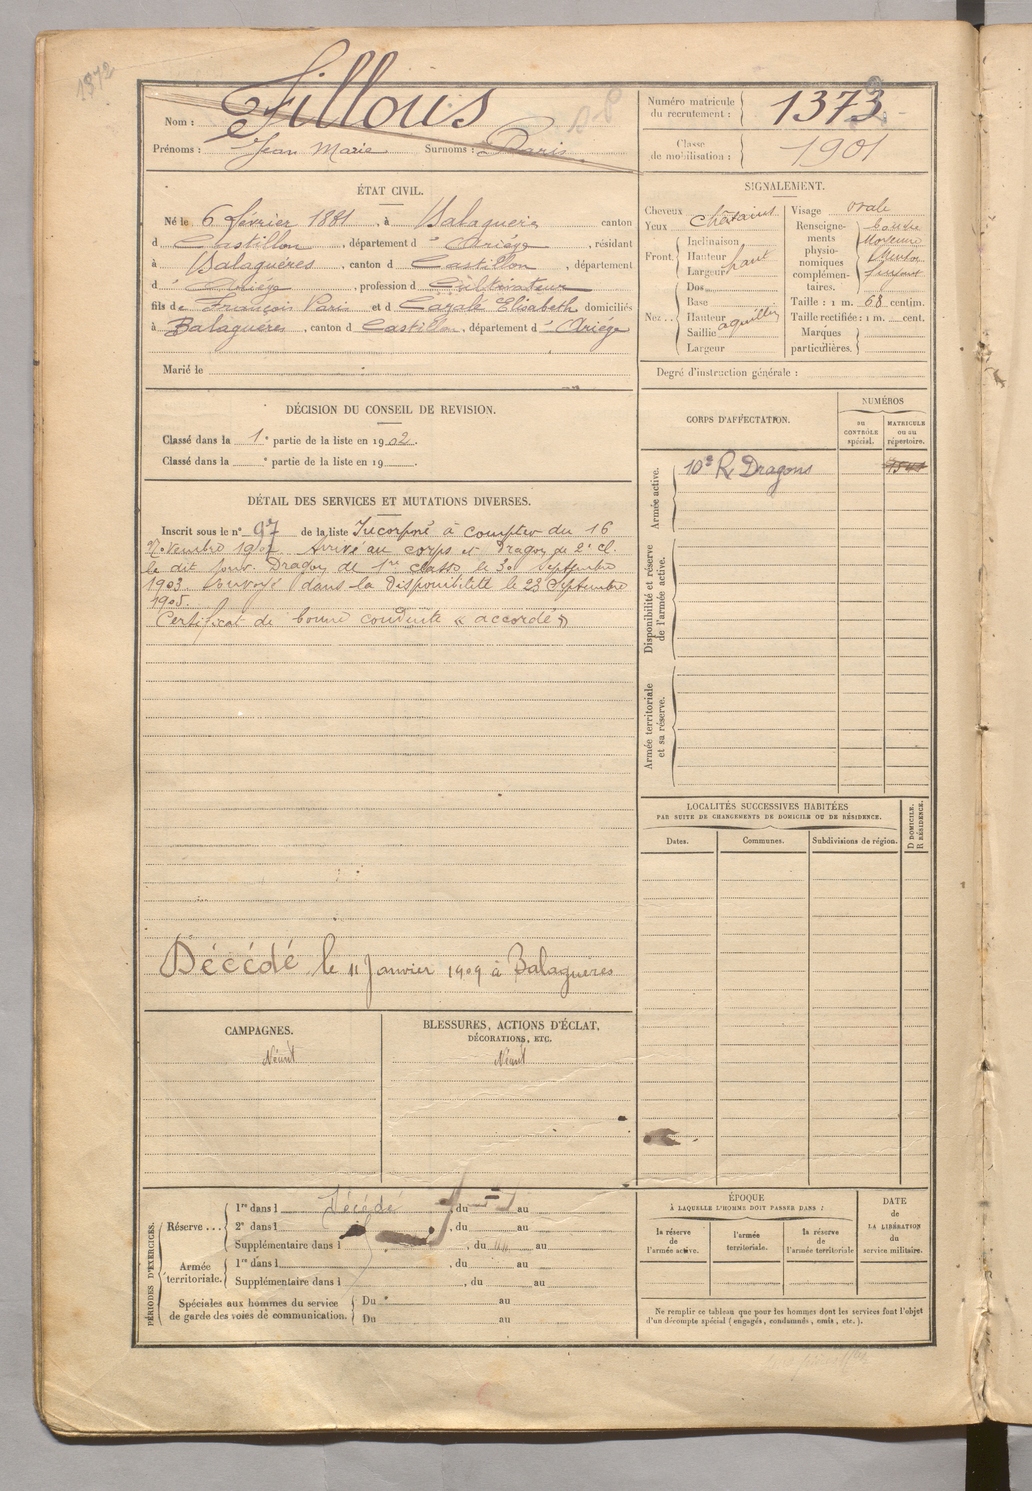 1372
Nom : Fillous
Prénoms : Jean Marie Surnoms : Paris
Numéro matricule du recrutement : 1373
Classe de mobilisation : 1901
ÉTAT CIVIL.
Né le 6 février 1881, à Balaguères canton
d Castillon, département d' Ariège, résidant
à Balaguères, canton d Castillon, département
d' Ariège, profession d Cultivateur
fils de François Paris et d Cazalé Elisabeth domiciliés
à Balaguères, canton d Castillon, département d' Ariège
Marié le
SIGNALEMENT.
Cheveux châtains
Yeux
Front. Inclinaison
Hauteur haut
Largeur
Nez... Dos
Base
Hauteur
Saillie aquilin
Largeur
Visage ovale
Renseignements physionomiques complémentaires.
Taille : 1 m. 68 centim.
Taille rectifiée : 1 m. cent.
Marques particulières.
Degré d'instruction générale :
DÉCISION DU CONSEIL DE REVISION.
Classé dans la 1e partie de la liste en 1902.
Classé dans la e partie de la liste en 19 .
DÉTAIL DES SERVICES ET MUTATIONS DIVERSES.
Inscrit sous le n° 97 de la liste Incorporé à compter du 16
Novembre 1902 Arrivé au corps et Dragon de 2e cl.
le dit jour. Dragon de 1re classe le 30 Septembre
1903 Envoyé dans la disponibilité le 23 Septembre
1905.
Certificat de bonne conduite « accordé »
Décédé le 11 Janvier 1909 à Balaguères
CORPS D'AFFECTATION.
NUMÉROS
au CONTRÔLE spécial.
MATRICULE ou au répertoire.
Armée active.
10e R. Dragons
Disponibilité et réserve de l'armée active.
Armée territoriale et sa réserve.
LOCALITÉS SUCCESSIVES HABITÉES
PAR SUITE DE CHANGEMENTS DE DOMICILE OU DE RÉSIDENCE.
Dates.
Communes.
Subdivisions de région.
D DOMICILE.
R RÉSIDENCE.
CAMPAGNES.
Néant
BLESSURES, ACTIONS D'ÉCLAT,
DÉCORATIONS, ETC.
Néant
PÉRIODES D'EXERCICES.
Réserve... 1re dans l Décédé, du au
2e dans l , du au
Supplémentaire dans l , du au
Armée territoriale. 1re dans l , du au
Supplémentaire dans l , du au
Spéciales aux hommes du service de garde des voies de communication. Du au
Du au
ÉPOQUE
À LAQUELLE L'HOMME DOIT PASSER DANS :
la réserve de l'armée active.
l'armée territoriale.
la réserve de l'armée territoriale
DATE
de
LA LIBÉRATION
du
service militaire.
Ne remplir ce tableau que pour les hommes dont les services font l'objet
d'un décompte spécial (engagés, condamnés, omis, etc.).